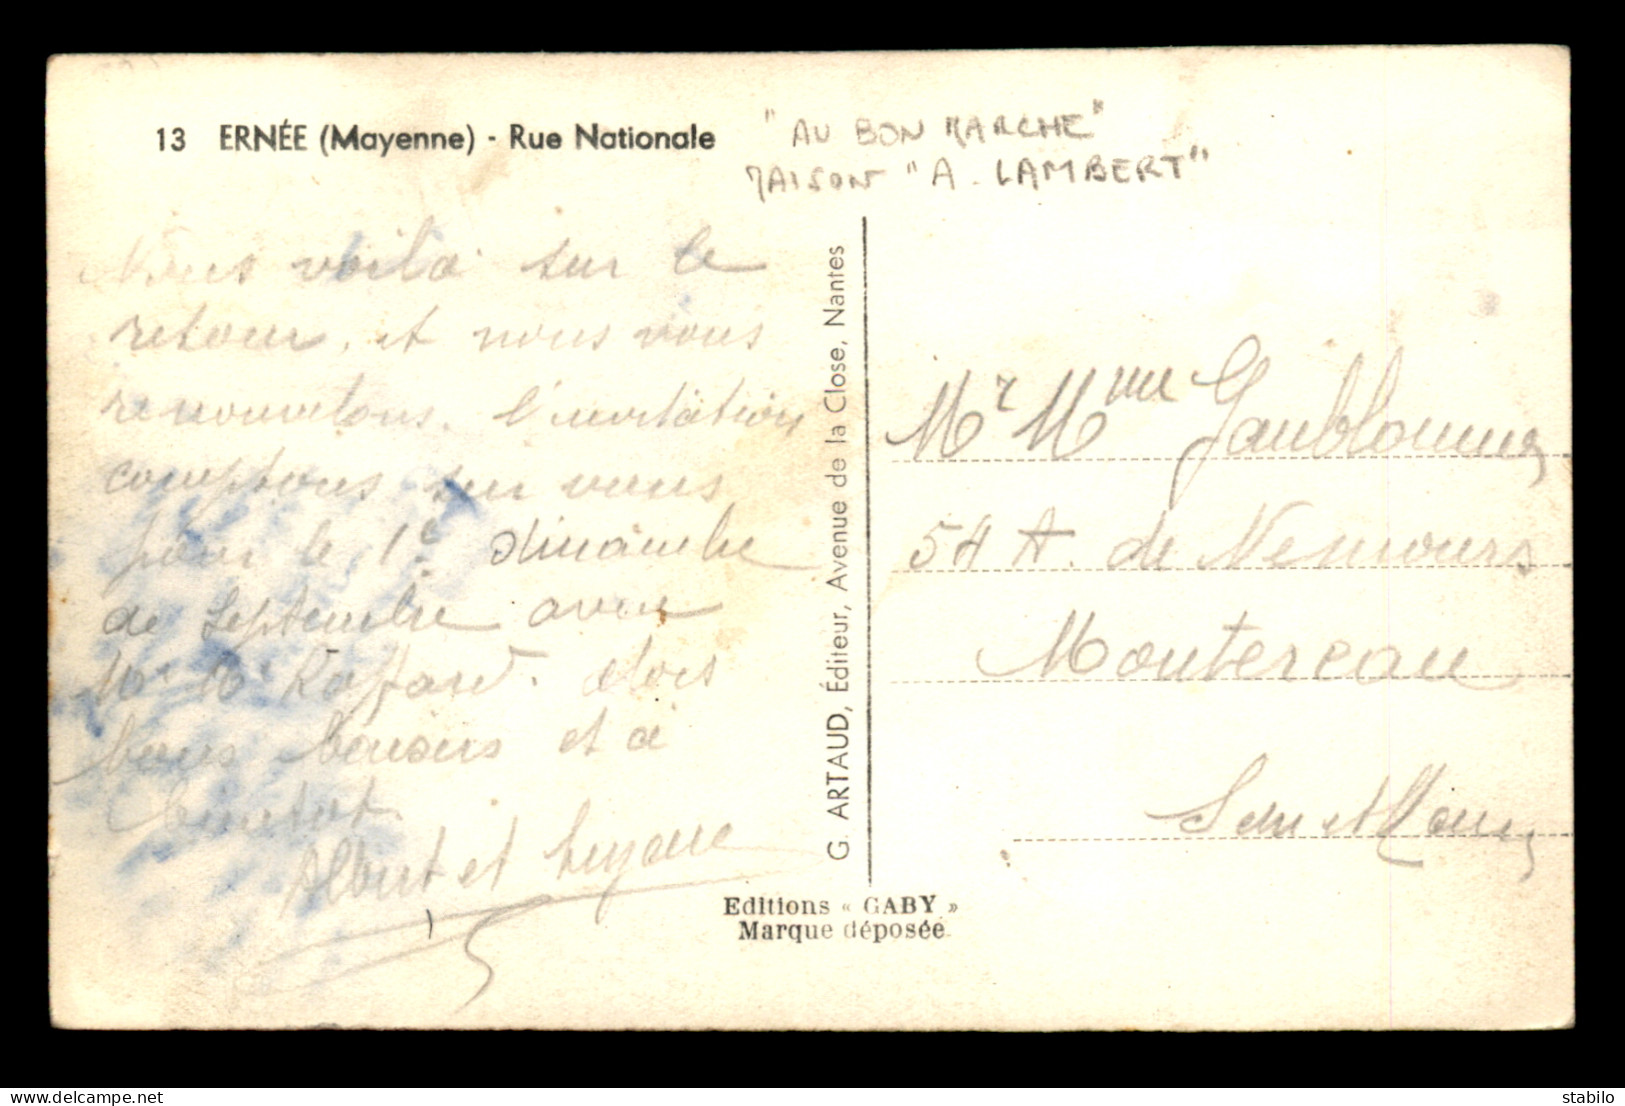 13 ERNÉE (Mayenne) - Rue Nationale
"AU BON MARCHE"
MAISON "A. LAMBERT"
Nous voilà sur le
retour, et nous vous
renouvelons. l'invitation
comptons sur vous
pour le 1e dimanche
de Septembre avec
Mr Mme Raffard. alors
bons baisers et à
bientot.
Albert et Suzanne
G. ARTAUD, Éditeur, Avenue de la Close, Nantes
Editions « GABY »
Marque déposée
Mr Mme
54 A. de Nemours
Montereau
Seine et Marne
Delcampe.net
stabilo